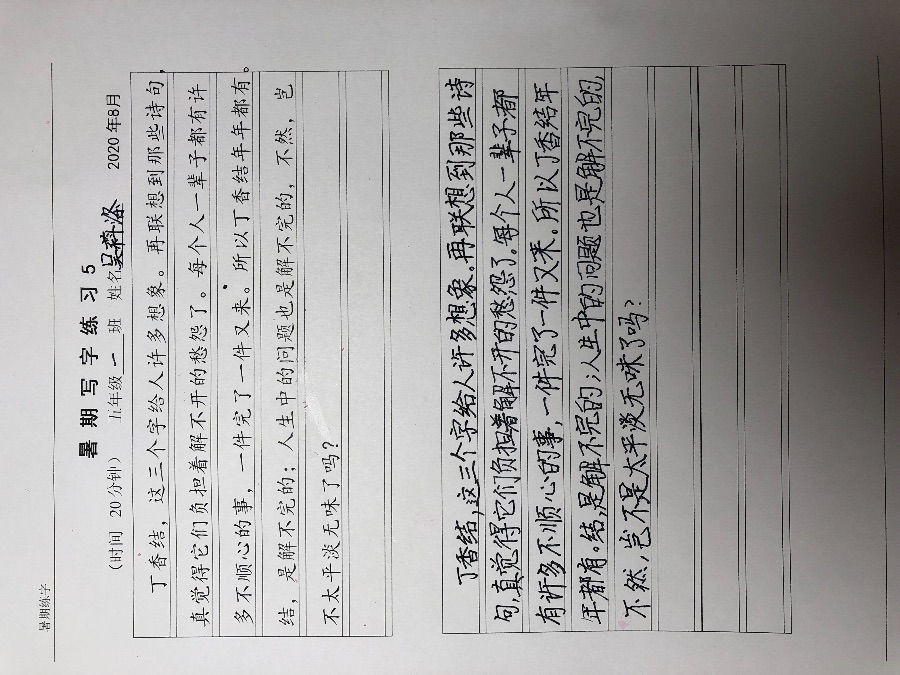 暑期练字
暑期写字练习5
(时间 20分钟) 五年级 一 班 姓名吴 2020年8月
丁香结，这三个字给人许多想象。再联想到那些诗句，
真觉得它们负担着解不开的愁怨了。每个人一辈子都有许
多不顺心的事，一件完了一件又来。所以丁香结年年都有。
结，是解不完的；人生中的问题也是解不完的，不然，岂
不太平淡无味了吗？
丁香结，这三个字给人许多想象。再联想到那些诗
句，真觉得它们负担着解不开的愁怨了。每个人一辈子都
有许多不顺心的事，一件完了一件又来。所以丁香结年
年都有。结，是解不完的；人生中的问题也是解不完的，
不然，岂不是太平淡无味了吗？